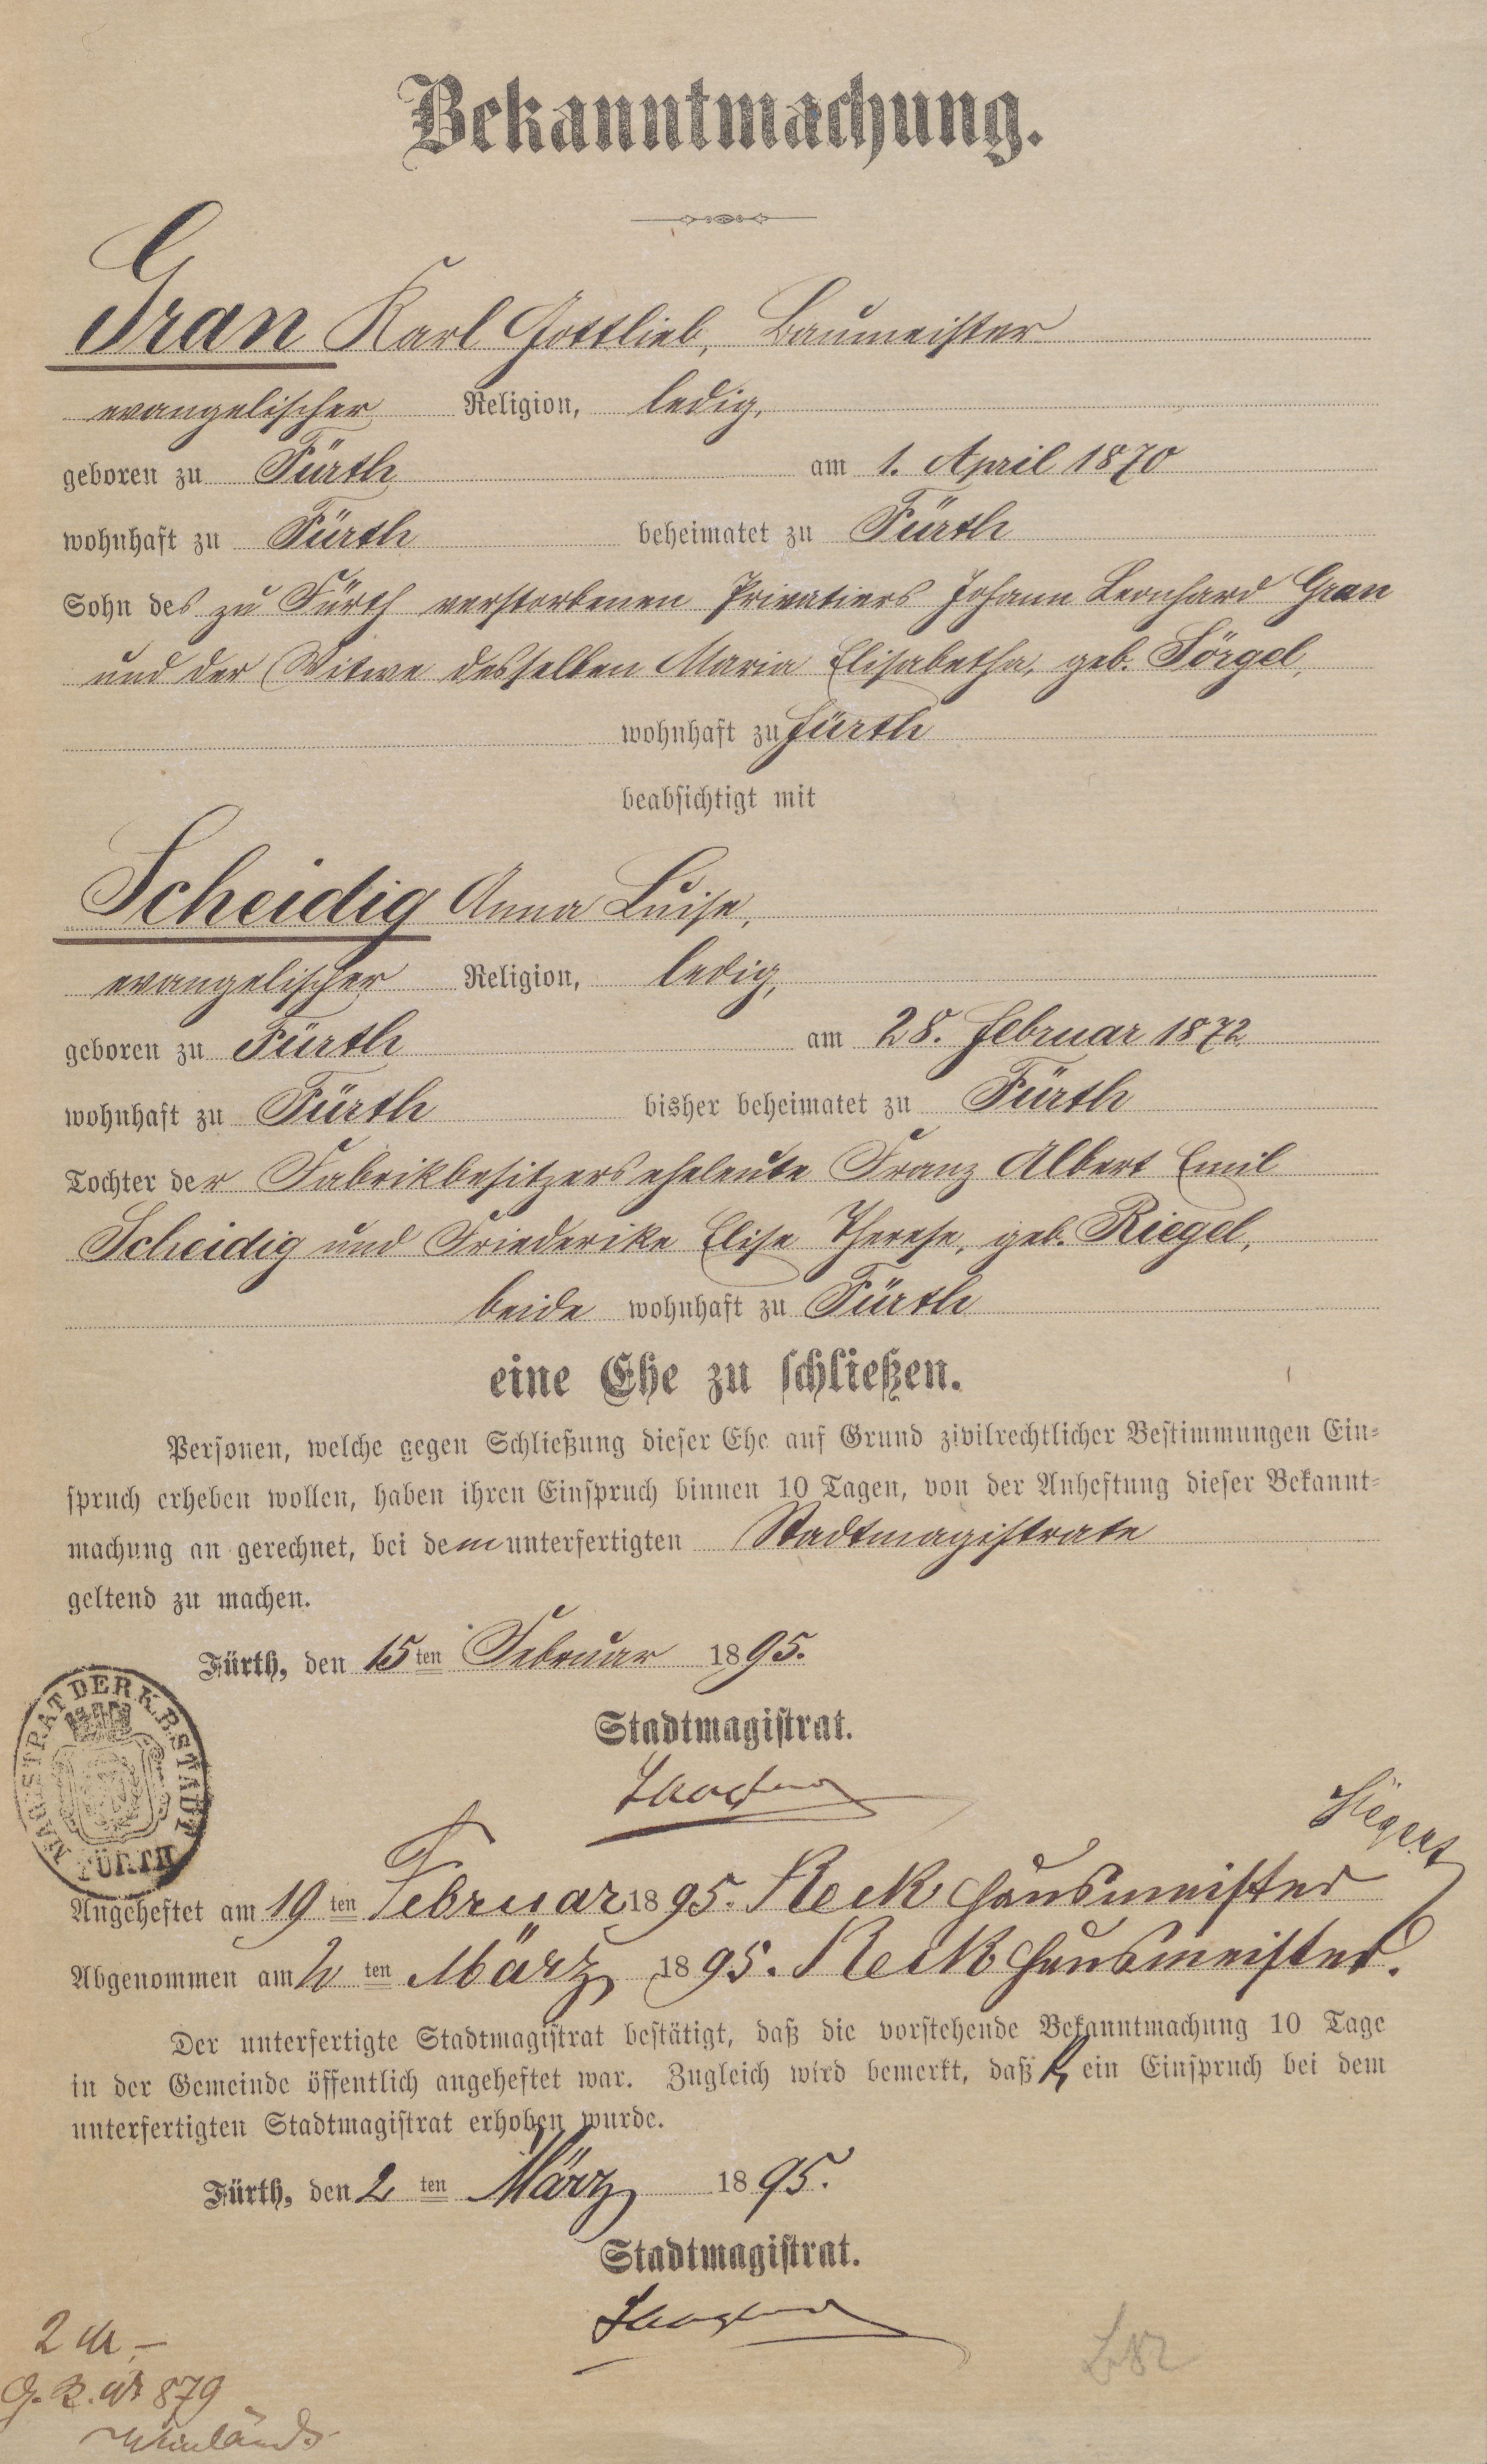 Bekanntmachung.
Gran Karl Gottlieb, Baumeister
evangelischer Religion, ledig,
geboren zu Fürth am 1. April 1870
wohnhaft zu Fürth beheimatet zu Fürth
Sohn des zu Fürth verstorbenen Privatiers Johann Leonhard Gran
und der Witwe desselben Maria Elisabetha, geb. Sörgel,
wohnhaft zu Fürth
beabsichtigt mit
Scheidig Anna Luise,
evangelischer Religion, ledig,
geboren zu Fürth am 28. Februar 1872
wohnhaft zu Fürth bisher beheimatet zu Fürth
Tochter der Fabrikbesitzerseheleute Franz Albert Emil
Scheidig und Friederike Elise Therese, geb. Riegel,
beide wohnhaft zu Fürth
eine Ehe zu schließen.
Personen, welche gegen Schließung dieser Ehe auf Grund zivilrechtlicher Bestimmungen Ein-
spruch erheben wollen, haben ihren Einspruch binnen 10 Tagen, von der Anheftung dieser Bekannt-
machung an gerechnet, bei dem unterfertigten Stadtmagistrate
geltend zu machen.
Fürth, den 15ten Februar 1895.
MAGISTRAT DER K.B. STADT FÜRTH
Stadtmagistrat.
Angeheftet am 19ten Februar 1895. Reck Hausmeister
Abgenommen am 2ten März 1895. Reck Hausmeister.
Der unterfertigte Stadtmagistrat bestätigt, daß die vorstehende Bekanntmachung 10 Tage
in der Gemeinde öffentlich angeheftet war. Zugleich wird bemerkt, daß kein Einspruch bei dem
unterfertigten Stadtmagistrat erhoben wurde.
Fürth, den 2ten März 1895.
Stadtmagistrat.
2 M. –
G. R. Nr 879